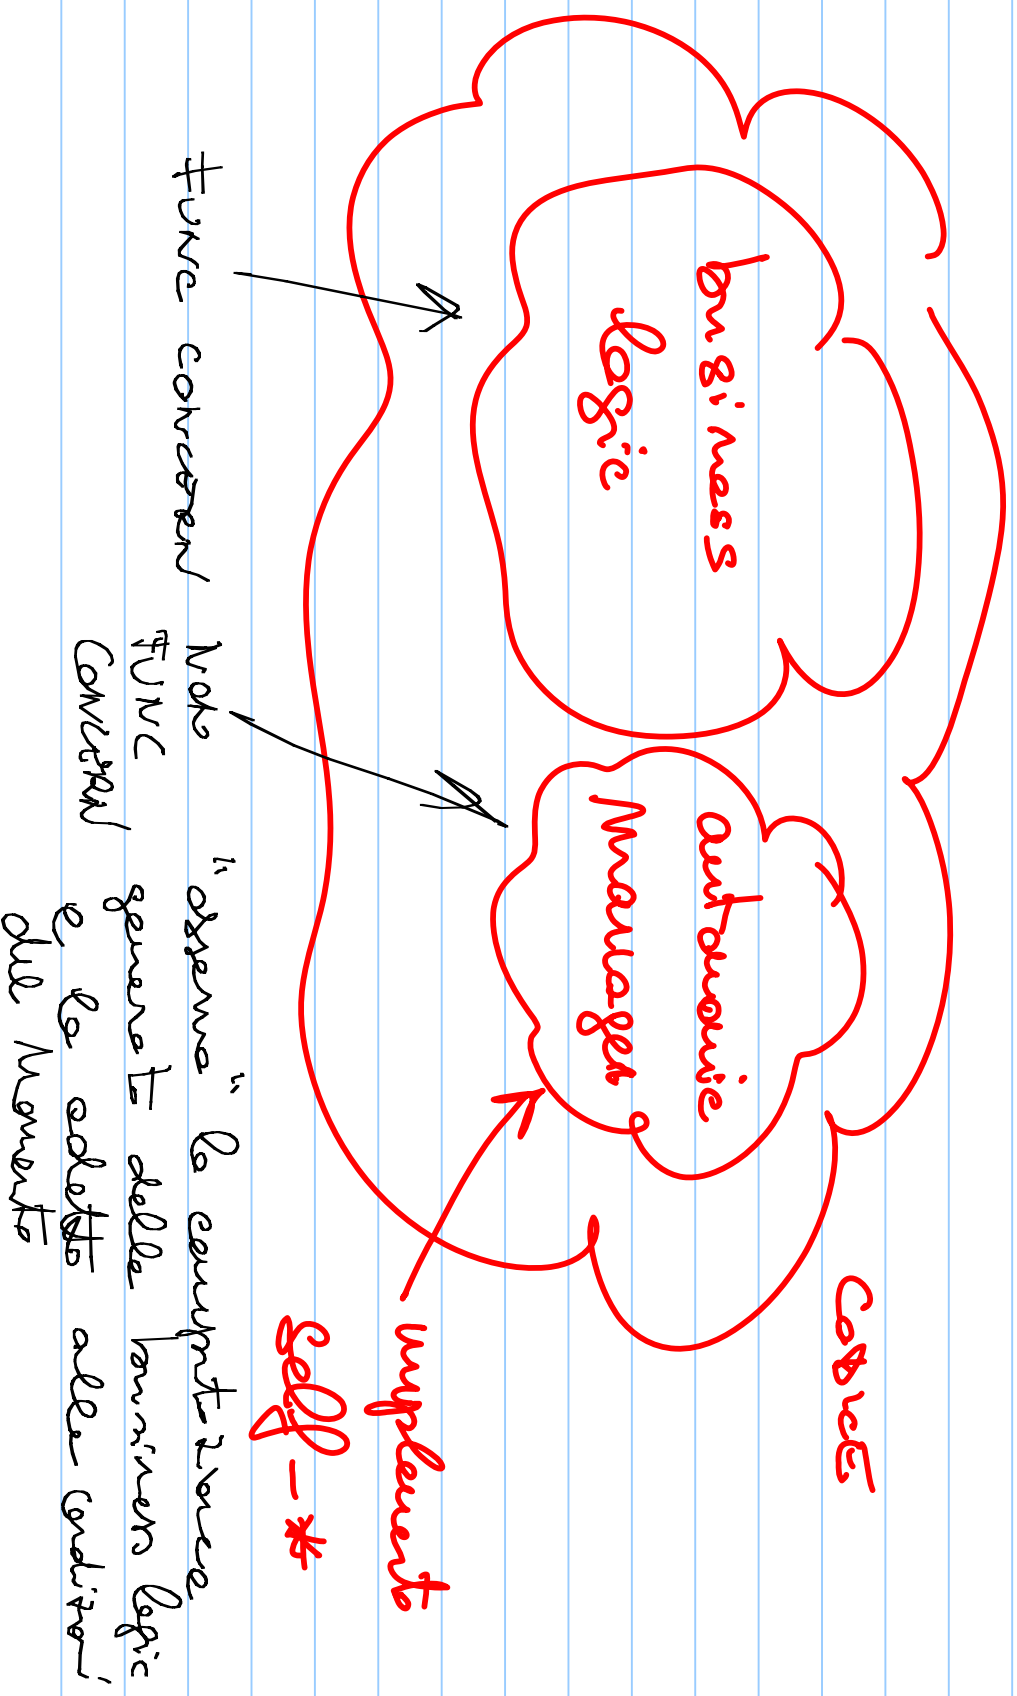 CODICE
business
logic
autonomic
Manager
implementa
self-*
FUNC CONCERN
NON
FUNC
CONCERN
"osserva" la computazione
generata dalla business logic
e la adatta alle condizioni
del momento